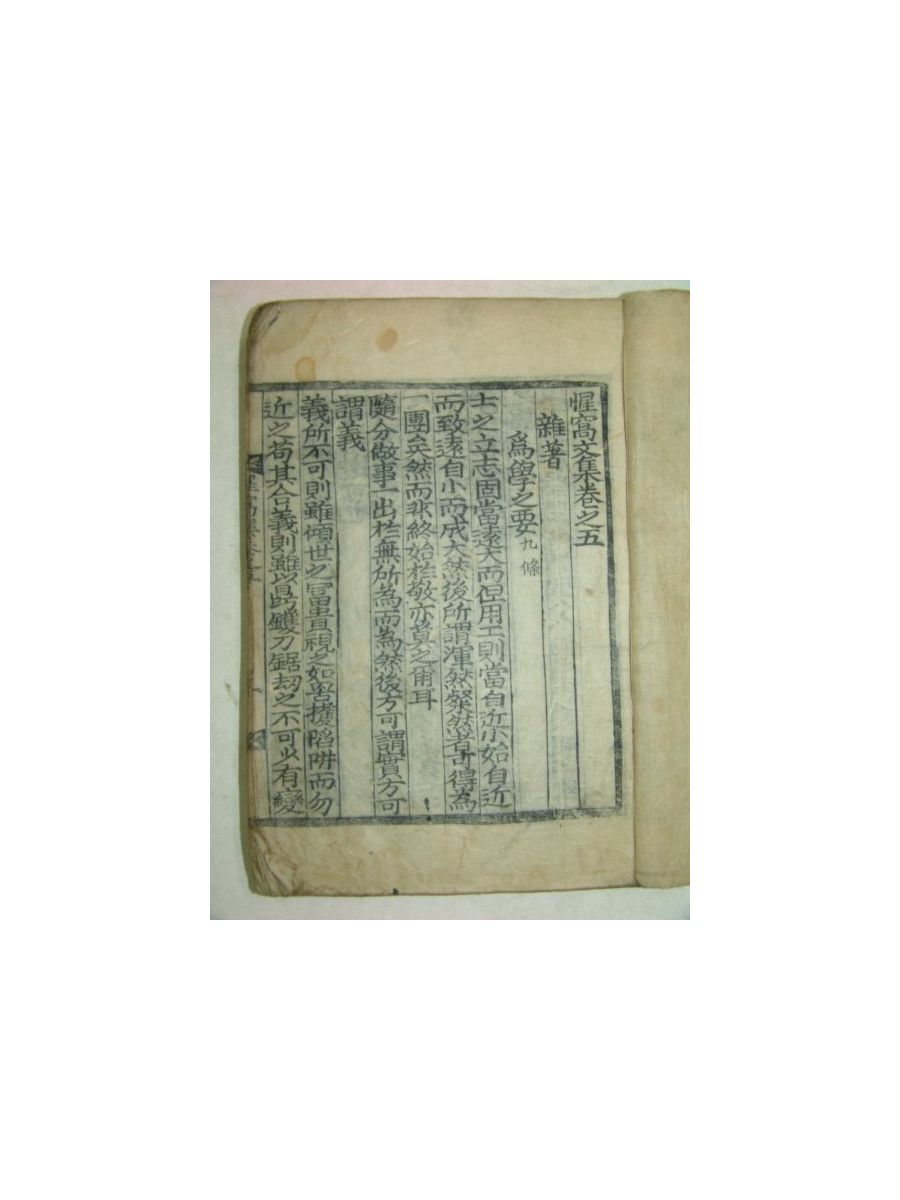 惺窩文集卷之五
雜著
爲學之要九條
士之立志固當遠大而但用工則當自近小始自近
而致遠自小而成大然後所謂渾然粲然者可得爲
一團矣然而非終始於敬亦莫之爾耳
隨分做事一出於無所為而為然後方可謂實方可
謂義
義所不可則雖傾世之富貴視之如罟擭陷阱而勿
近之苟其合義則雖以鼎鑊刀鋸刼之不可少有變